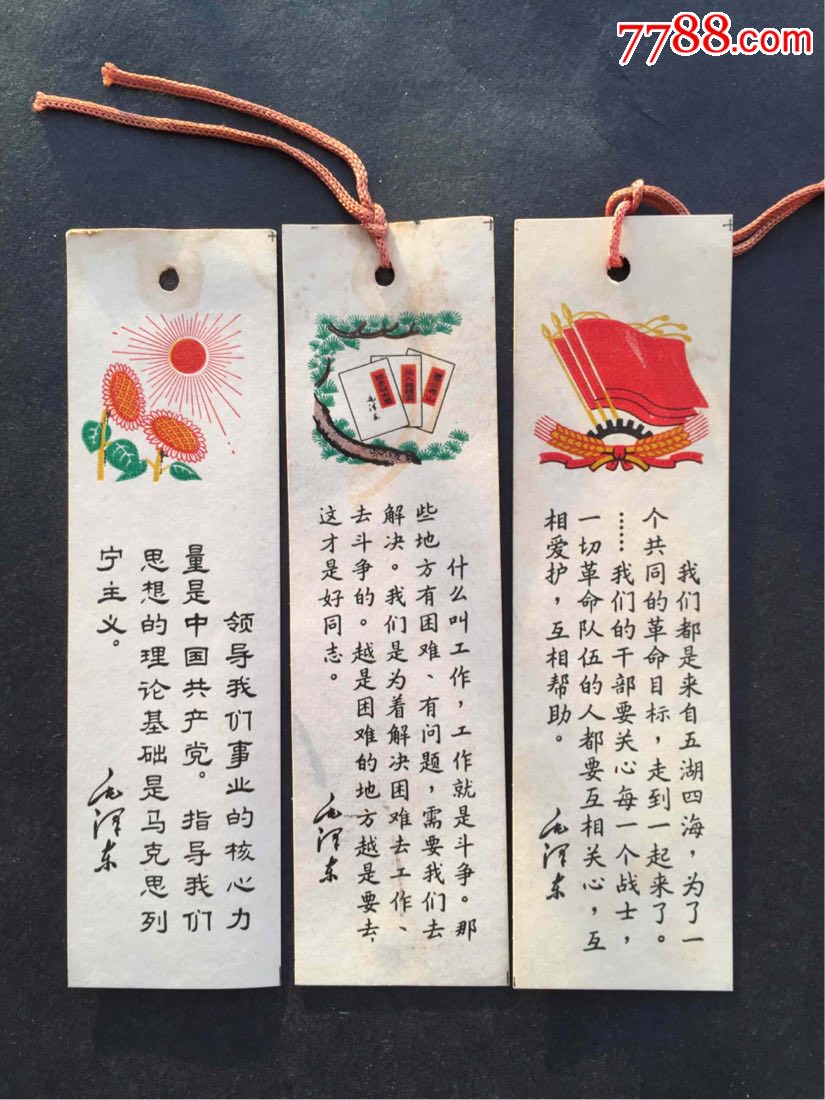 7788.com
领导我们事业的核心力
量是中国共产党。指导我们
思想的理论基础是马克思列
宁主义。
毛泽东
毛泽东
什么叫工作，工作就是斗争。那
些地方有困难、有问题，需要我们去
解决。我们是为着解决困难去工作、
去斗争的。越是困难的地方越是要去，
这才是好同志。
毛泽东
我们都是来自五湖四海，为了一
个共同的革命目标，走到一起来了。
……我们的干部要关心每一个战士，
一切革命队伍的人都要互相关心，互
相爱护，互相帮助。
毛泽东